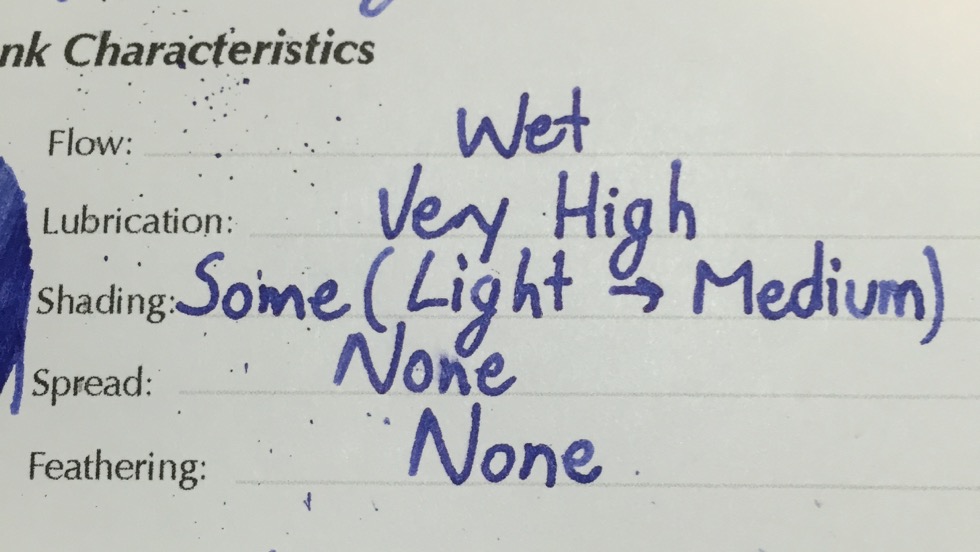 nk Characteristics
Flow: Wet
Lubrication: Very High
Shading: Some (Light → Medium)
Spread: None
Feathering: None